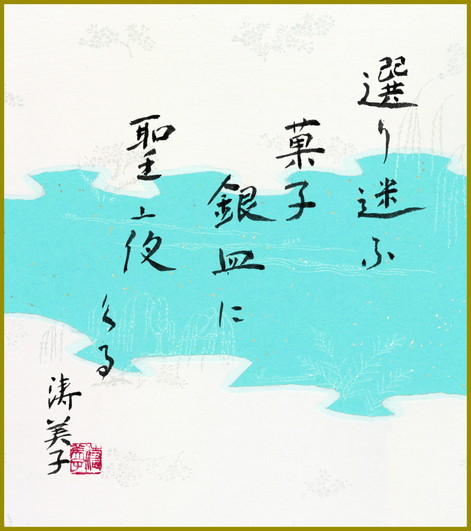 選り迷ふ
菓子
銀皿に
聖夜くる
涛美子